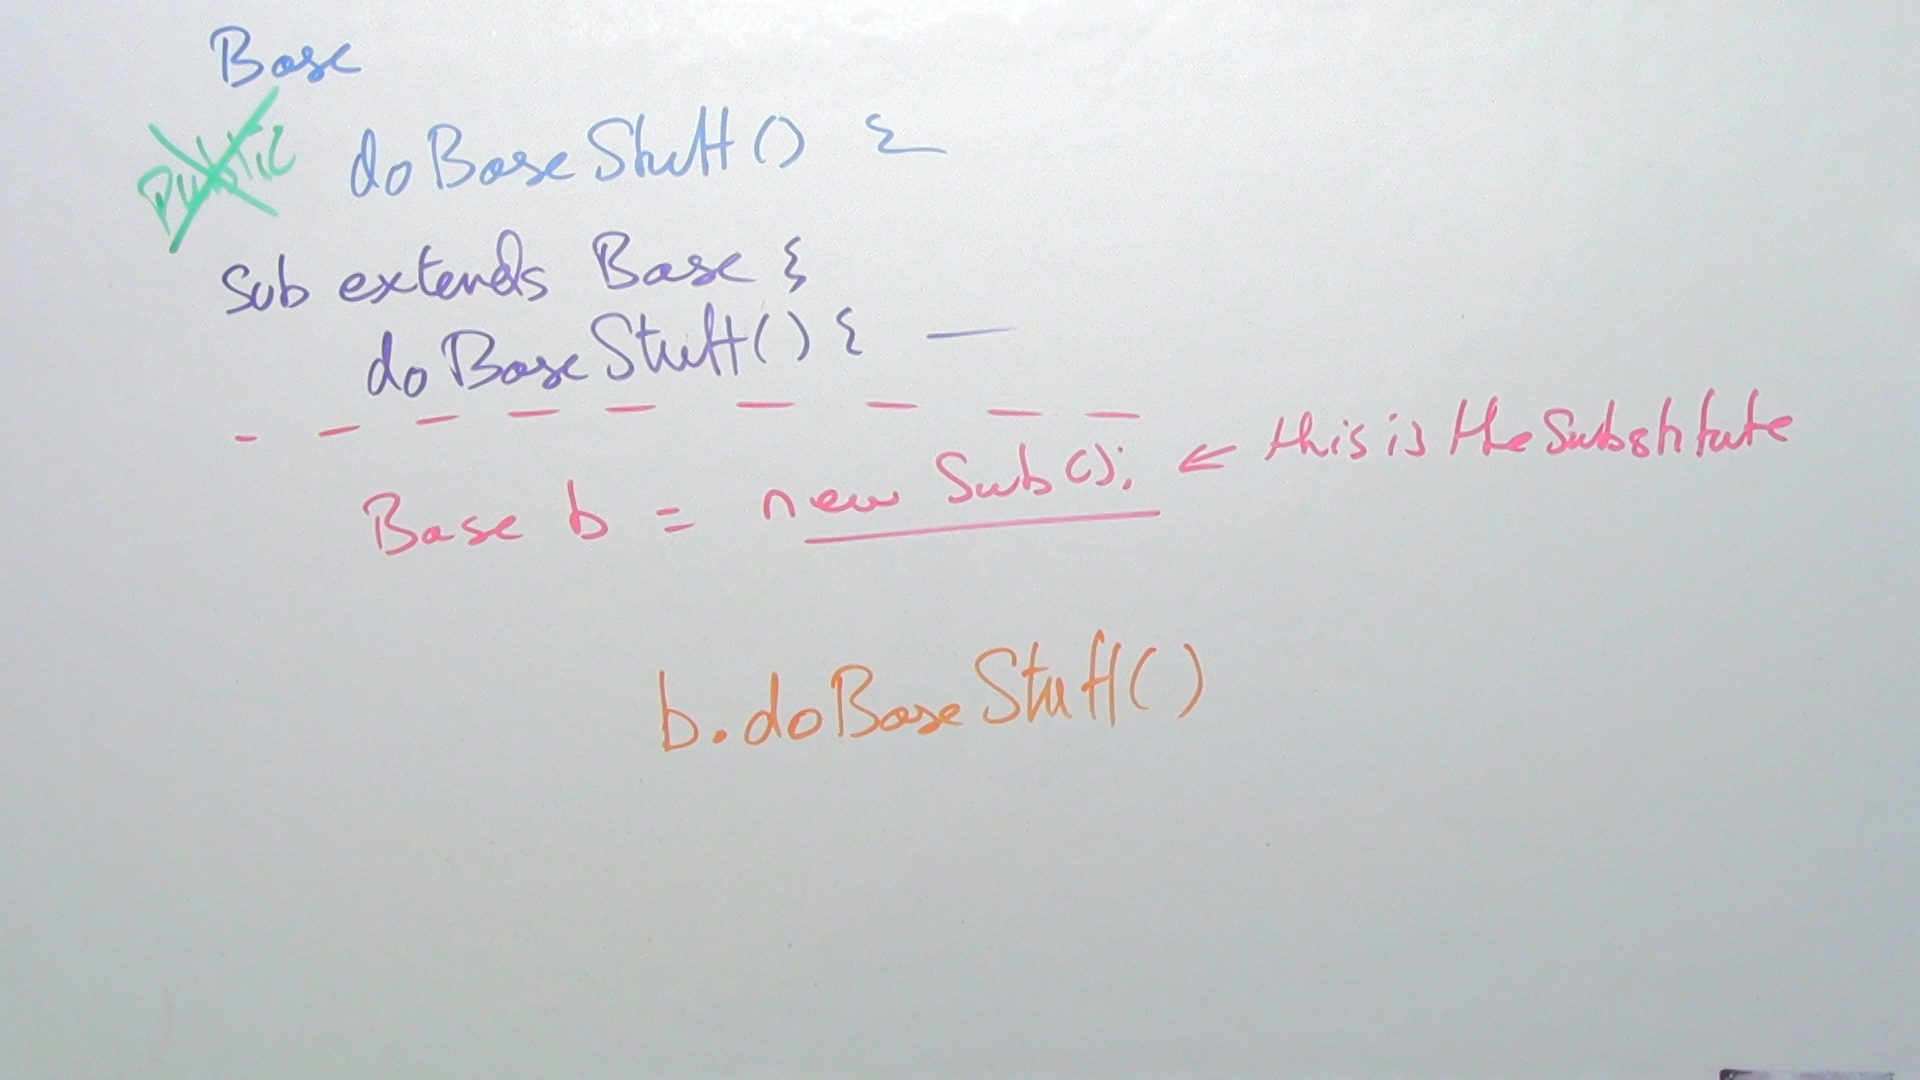 Base
public doBaseStuff() {
Sub extends Base {
doBaseStuff() { —
- - - - - - - - -
Base b = new Sub(); ← this is the Substitute
b.doBaseStuff()